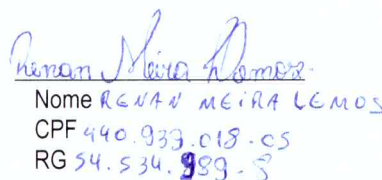 Renan Meira Lemos
Nome RENAN MEIRA LEMOS
CPF 440.933.018-05
RG 54.534.989-8